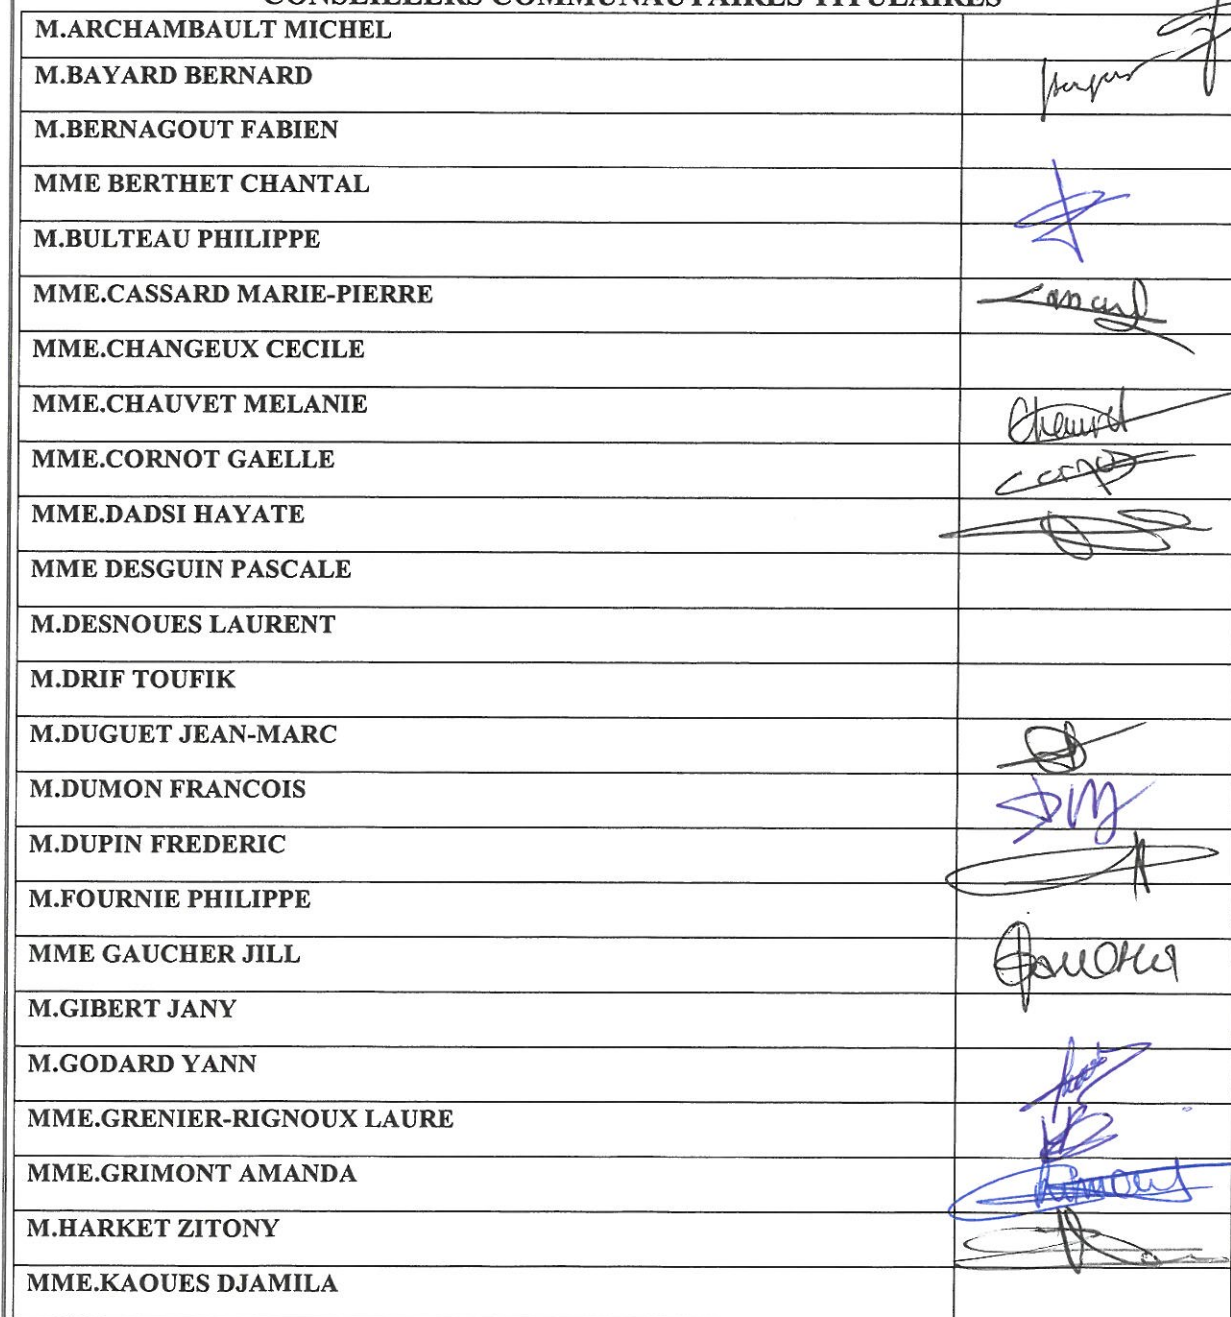 CONSEILLERS COMMUNAUTAIRES TITULAIRES
M.ARCHAMBAULT MICHEL
M.BAYARD BERNARD
M.BERNAGOUT FABIEN
MME BERTHET CHANTAL
M.BULTEAU PHILIPPE
MME.CASSARD MARIE-PIERRE
MME.CHANGEUX CECILE
MME.CHAUVET MELANIE
MME.CORNOT GAELLE
MME.DADSI HAYATE
MME DESGUIN PASCALE
M.DESNOUES LAURENT
M.DRIF TOUFIK
M.DUGUET JEAN-MARC
M.DUMON FRANCOIS
M.DUPIN FREDERIC
M.FOURNIE PHILIPPE
MME GAUCHER JILL
M.GIBERT JANY
M.GODARD YANN
MME.GRENIER-RIGNOUX LAURE
MME.GRIMONT AMANDA
M.HARKET ZITONY
MME.KAOUES DJAMILA